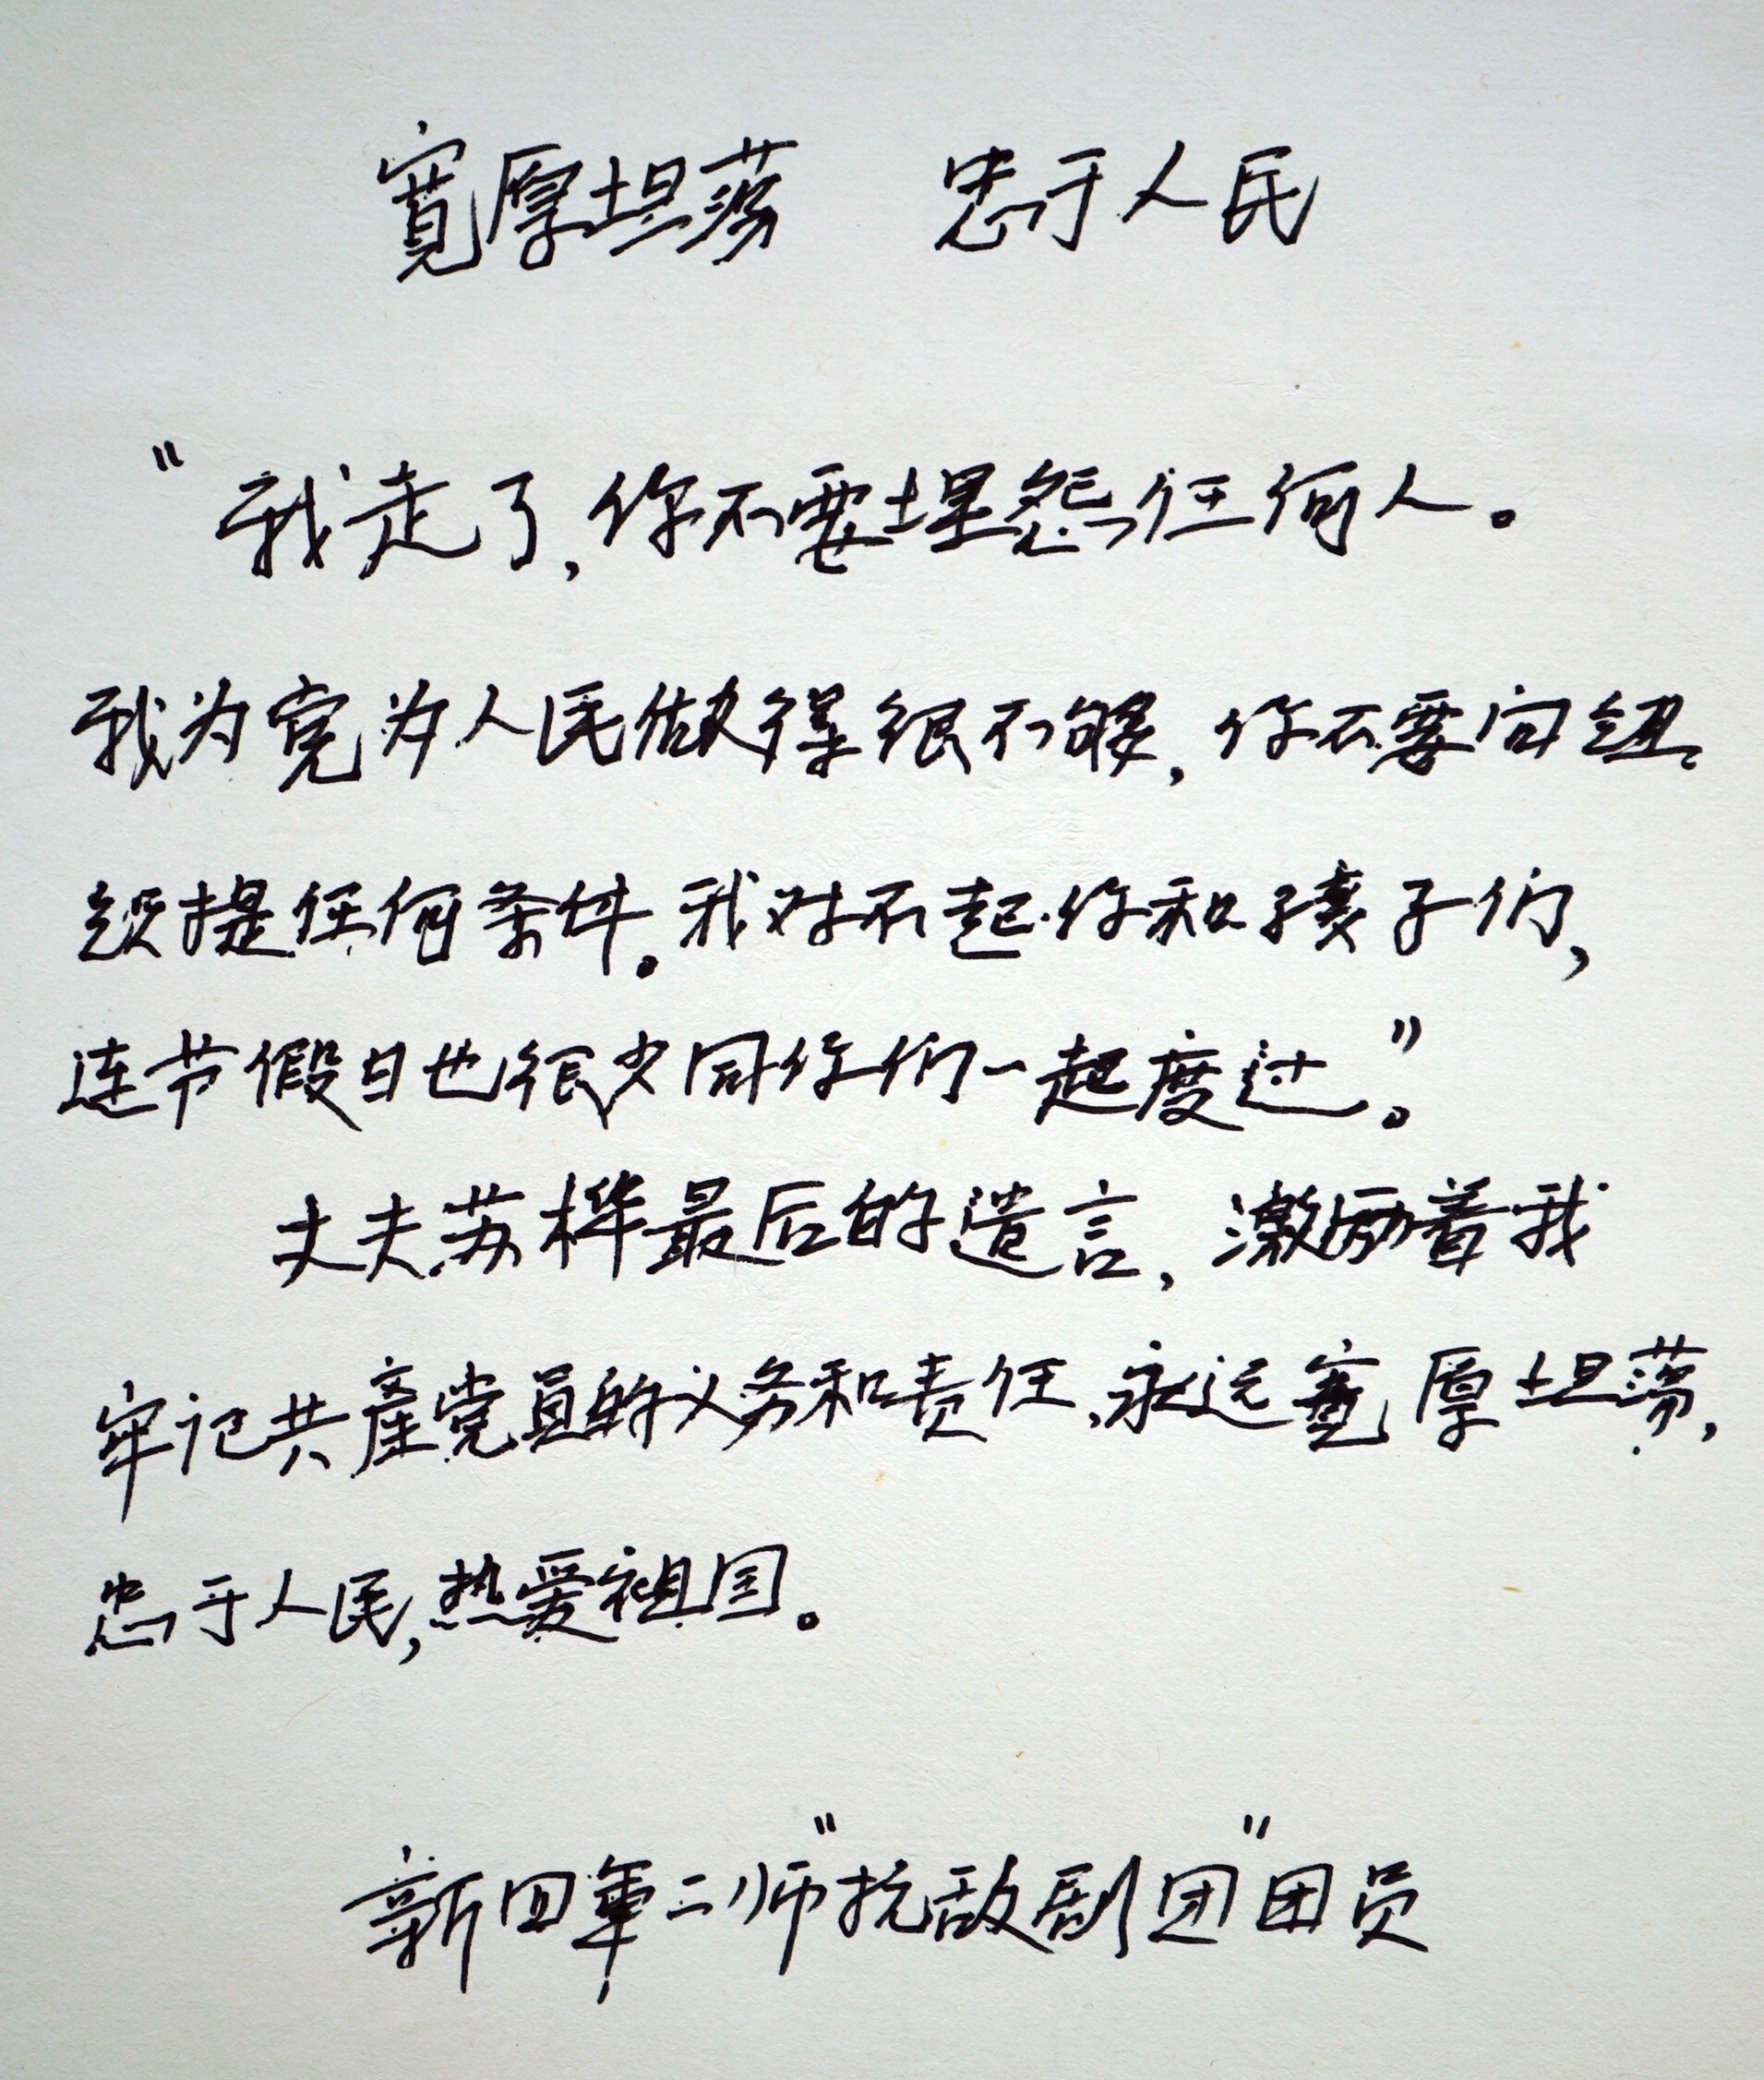 寬厚坦荡 忠于人民
“我走了,你不要埋怨任何人。
我为党为人民做得很不够,你不要向组
织提任何条件。我对不起你和孩子们,
连节假日也很少同你们一起度过。”
丈夫苏桦最后的遗言,激励着我
牢记共產党员的义务和责任,永远寬厚坦荡,
忠于人民,热爱祖国。
新四軍二师“抗敌剧团”团员